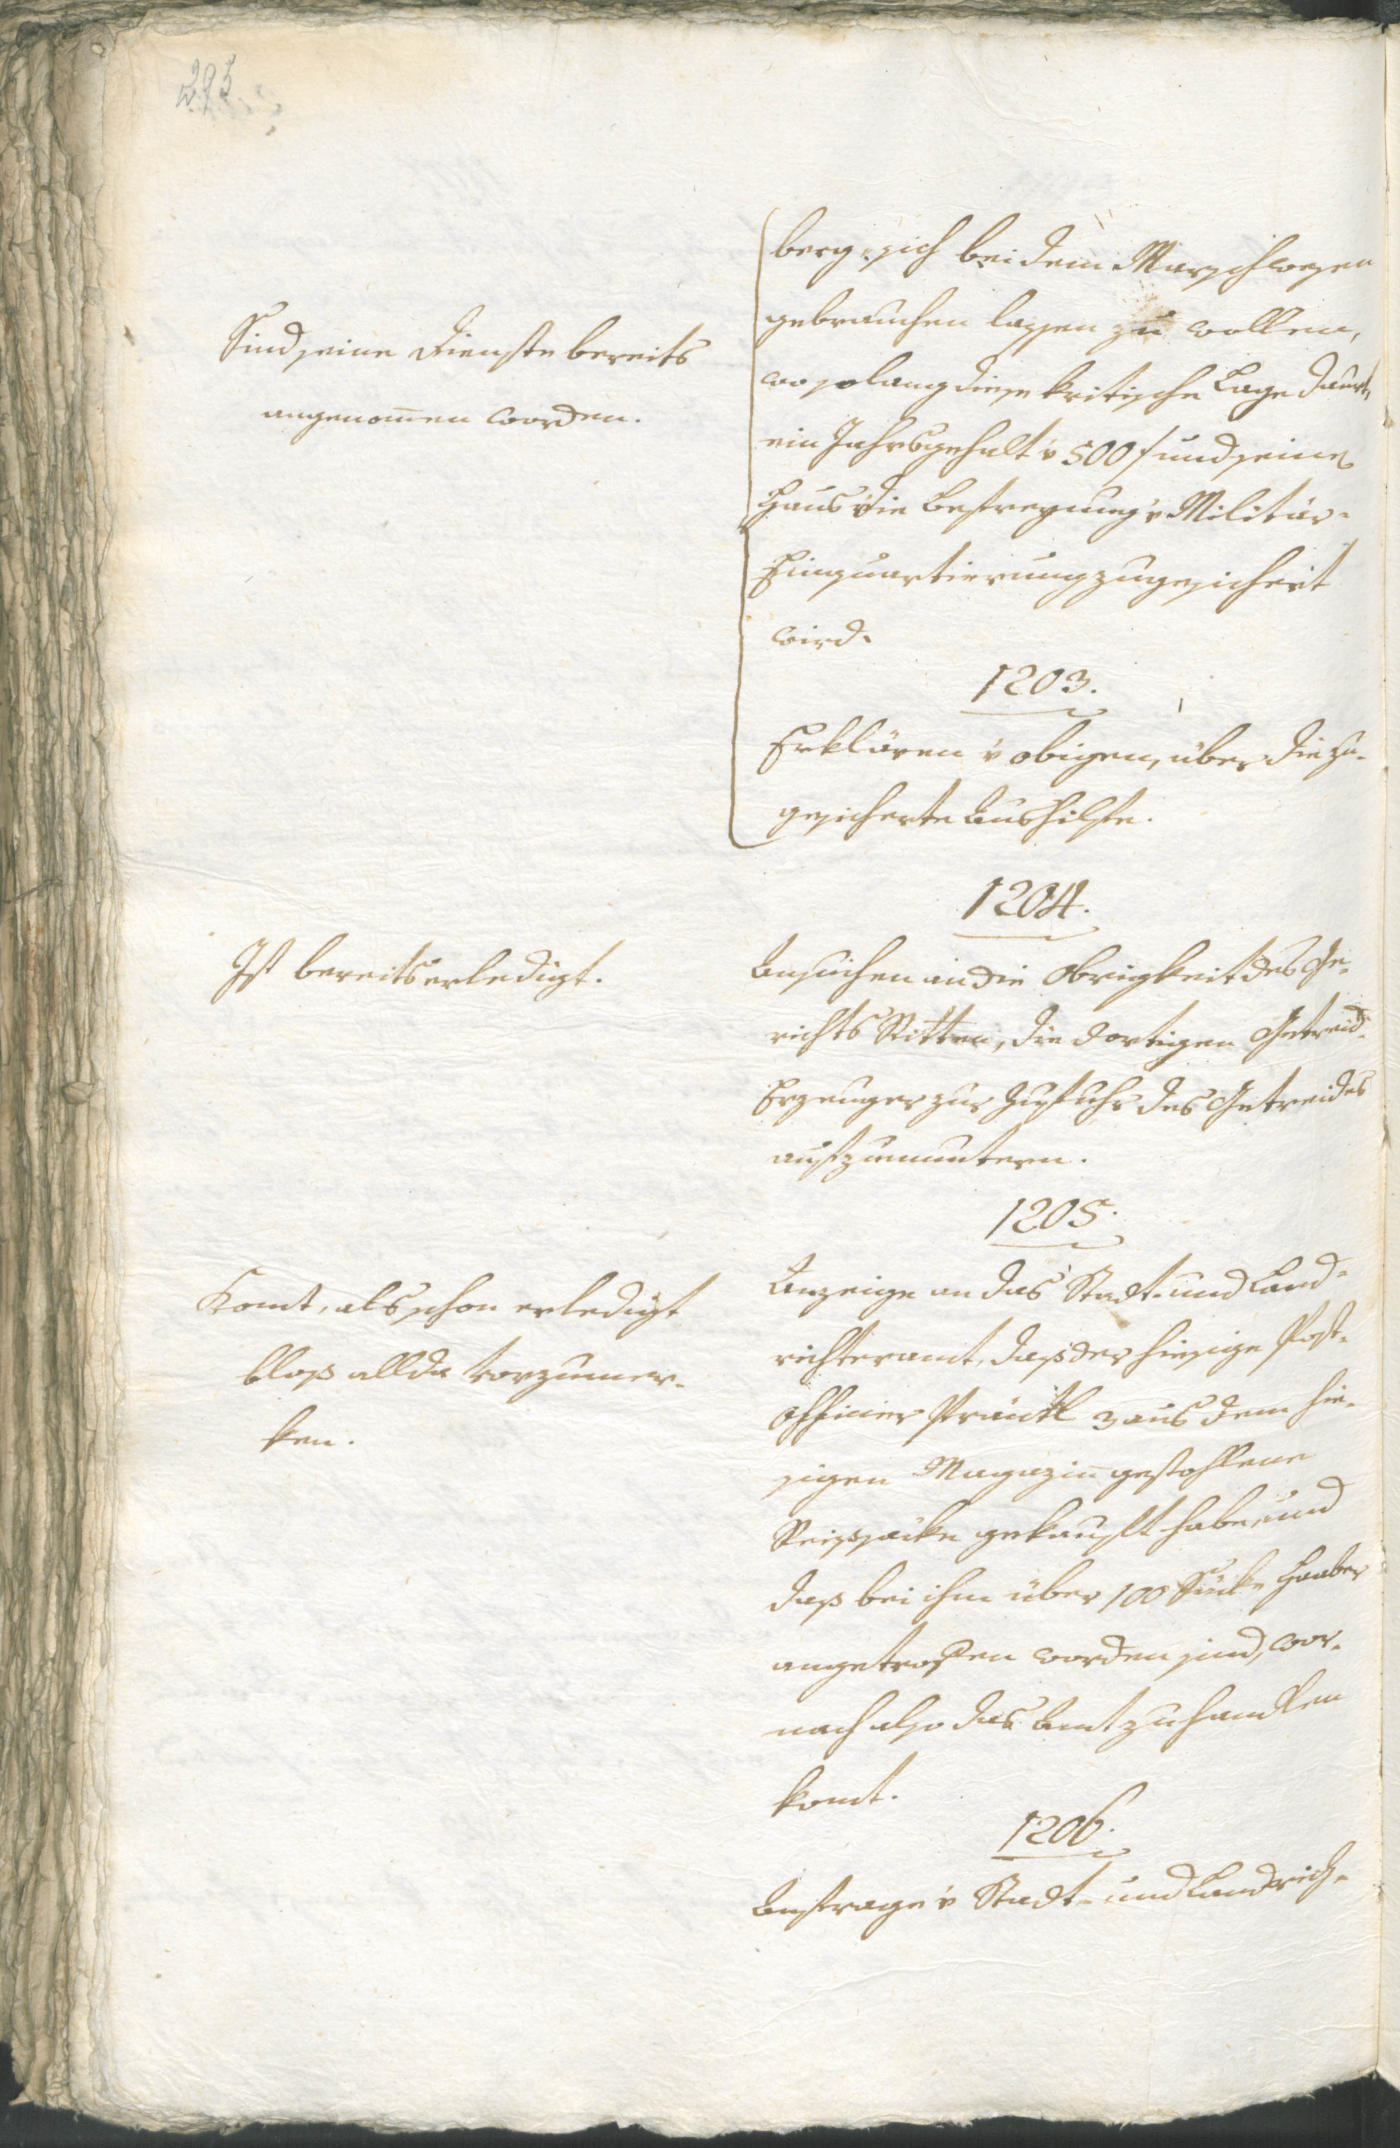 295.
Sind seine Dienste bereits
angenom̄en worden.
berg, sich bei dem Marschwesen
gebrauchen lassen zu wollen,
wo solang diese kritische Lage daurt,
ein Jahrsgehalt v 500 f und seinem
Haus die Befreyung v Militär-
Einquartierung zugesichert
wird.
1203.
Erklären v obigen, über die zu-
gesicherte Aushilfe.
1204.
Ist bereits erledigt.
Ansuchen an die Obrigkeit des Ge-
richts Ritten, die dortigen Getreid-
Erzeuger zur Zufuhr des Getreides
aufzumuntern.
1205.
Komt, als schon erledigt
bloß allda vorzumer-
ken.
Anzeige an das Stadt- und Land-
richteramt, daß der hiesige Post-
Officier 3 aus dem hie-
sigen Magazin gestohlene
Reissäcke gekauft habe, und
daß bei ihm über 100 Säcke Haaber
angetroffen worden sind, wor-
nach also das Amt zu handlen
komt.
1206.
Anfrage v Stadt- und Landrich-